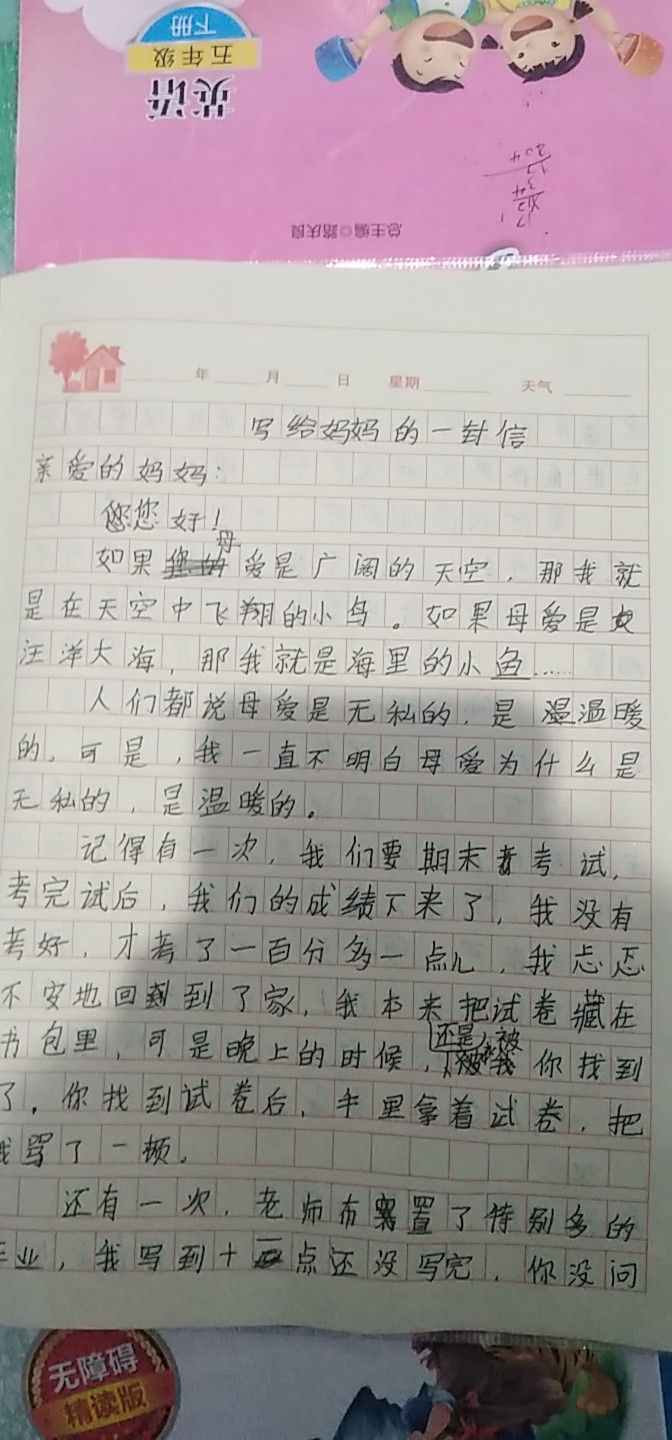 下册
五年级
英语
总主编◎路庆良
年 月 日 星期 天气
写给妈妈的一封信
亲爱的妈妈：
您好！
如果母爱是广阔的天空，那我就
是在天空中飞翔的小鸟。如果母爱是
汪洋大海，那我就是海里的小鱼……
人们都说母爱是无私的，是温暖
的。可是，我一直不明白母爱为什么是
无私的，是温暖的。
记得有一次，我们要期末考试，
考完试后，我们的成绩下来了，我没有
考好，才考了一百分多一点儿，我忐忑
不安地回到了家，我本来把试卷藏在
书包里，可是晚上的时候，还是被你找到
了，你找到试卷后，手里拿着试卷，把
我骂了一顿。
还有一次，老师布置了特别多的
作业，我写到十一点还没写完，你没问
无障碍
精读版